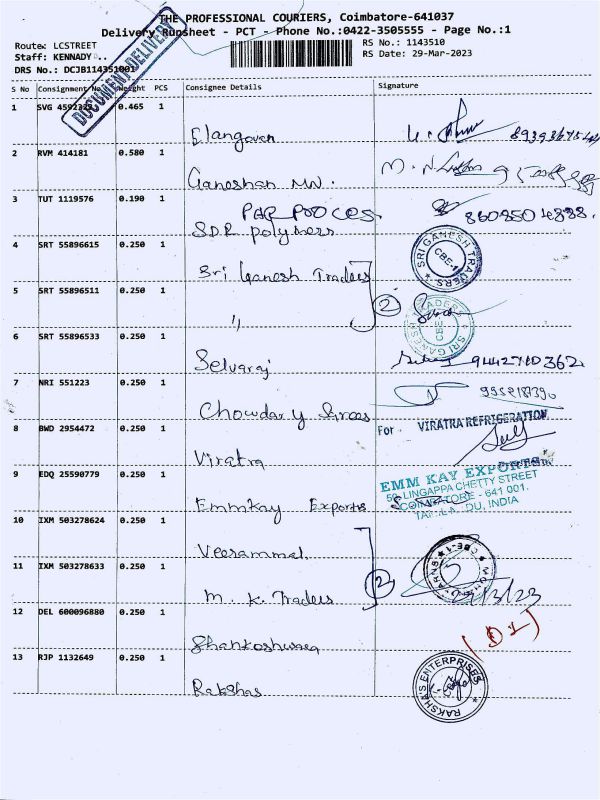 THE PROFESSIONAL COURIERS, Coimbatore-641037
Delivery Runsheet - PCT - Phone No.:0422-3505555 - Page No.:1
Route: LCSTREET
RS No.: 1143510
Staff: KENNADY ..
RS Date: 29-Mar-2023
DRS No.: DCJB114351001
DOCUMENT DELIVERY
S No Consignment No Weight PCS Consignee Details Signature
1 SVG 0.465 1
Elangoven
2 RVM 414181 0.580 1
Ganeshan MN.
3 TUT 1119576 0.190 1
PAR PROCES
SDR polymers
4 SRT 55896615 0.250 1
Sri Ganesh Traders
SRI GANESH TRADERS
CBE-1
5 SRT 55896511 0.250 1
"
2
SRI GANESH TRADERS
CBE
6 SRT 55896533 0.250 1
Selvaraj
7 NRI 551223 0.250 1
Chowdary
8 BWD 2954472 0.250 1
For VIRATRA REFRIGERATION
Viratra
9 EDQ 25590779 0.250 1
EMM KAY EXPORTS
LINGAPPA CHETTY STREET
COIMBATORE - 641 001.
INDIA
EmmKay Exports
10 IXM 503278624 0.250 1
Veerammal
CBE-1
11 IXM 503278633 0.250 1
M. K. Traders
2
12 DEL 600096880 0.250 1
(D1)
13 RJP 1132649 0.250 1
Rakshas
RAKSHA'S ENTERPRISES